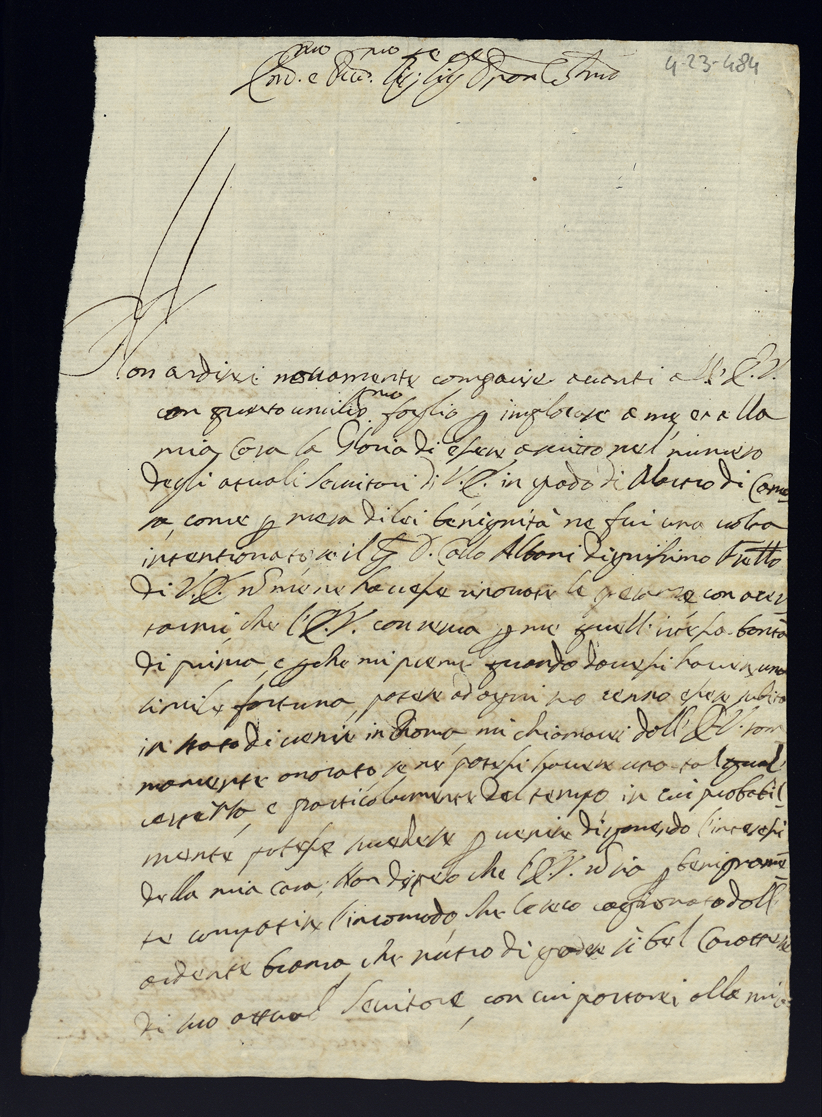 4-23-484
Em.mo e Rev.mo Sig.re Sig.re Pron Col.mo
Non ardirei novamente comparire avanti all'E.V.
con questo umiliss.mo foglio p implorare a me et alla
mia Casa la Gloria di essere ascritto nel numero
degli attuali Servitori di V.E. in grado di Mastro di Came=
ra, come p mera di lei benignità ne fui una volta
intentionato se il Sig. D. Carlo Albani dignissimo Frello
di V.E. nō me ne havesse rinovate le con acer=
tarmi, che l'E.V. conserva p me quell'istessa bontà
di prima, e p che mi preme quando dovessi havere una
simile fortuna, potere ad ogni suo cenno essere subito
in stato di venire in Roma, mi chiamarei dall'E.V. som=
mamente onorato se ne potessi havere una tal qual
certezza, e particolarmente del tempo in cui probabil=
mente potesse succedere p venire disponendo l'interessi
della mia casa; Non dispero che l'E.V. nō sia p benigname=
te compatire l'incomodo, che le reco cagionato dall'
ardente brama, che nutro di godere sì bel Carattere
di suo attual Servitore, con cui portarei alla mia